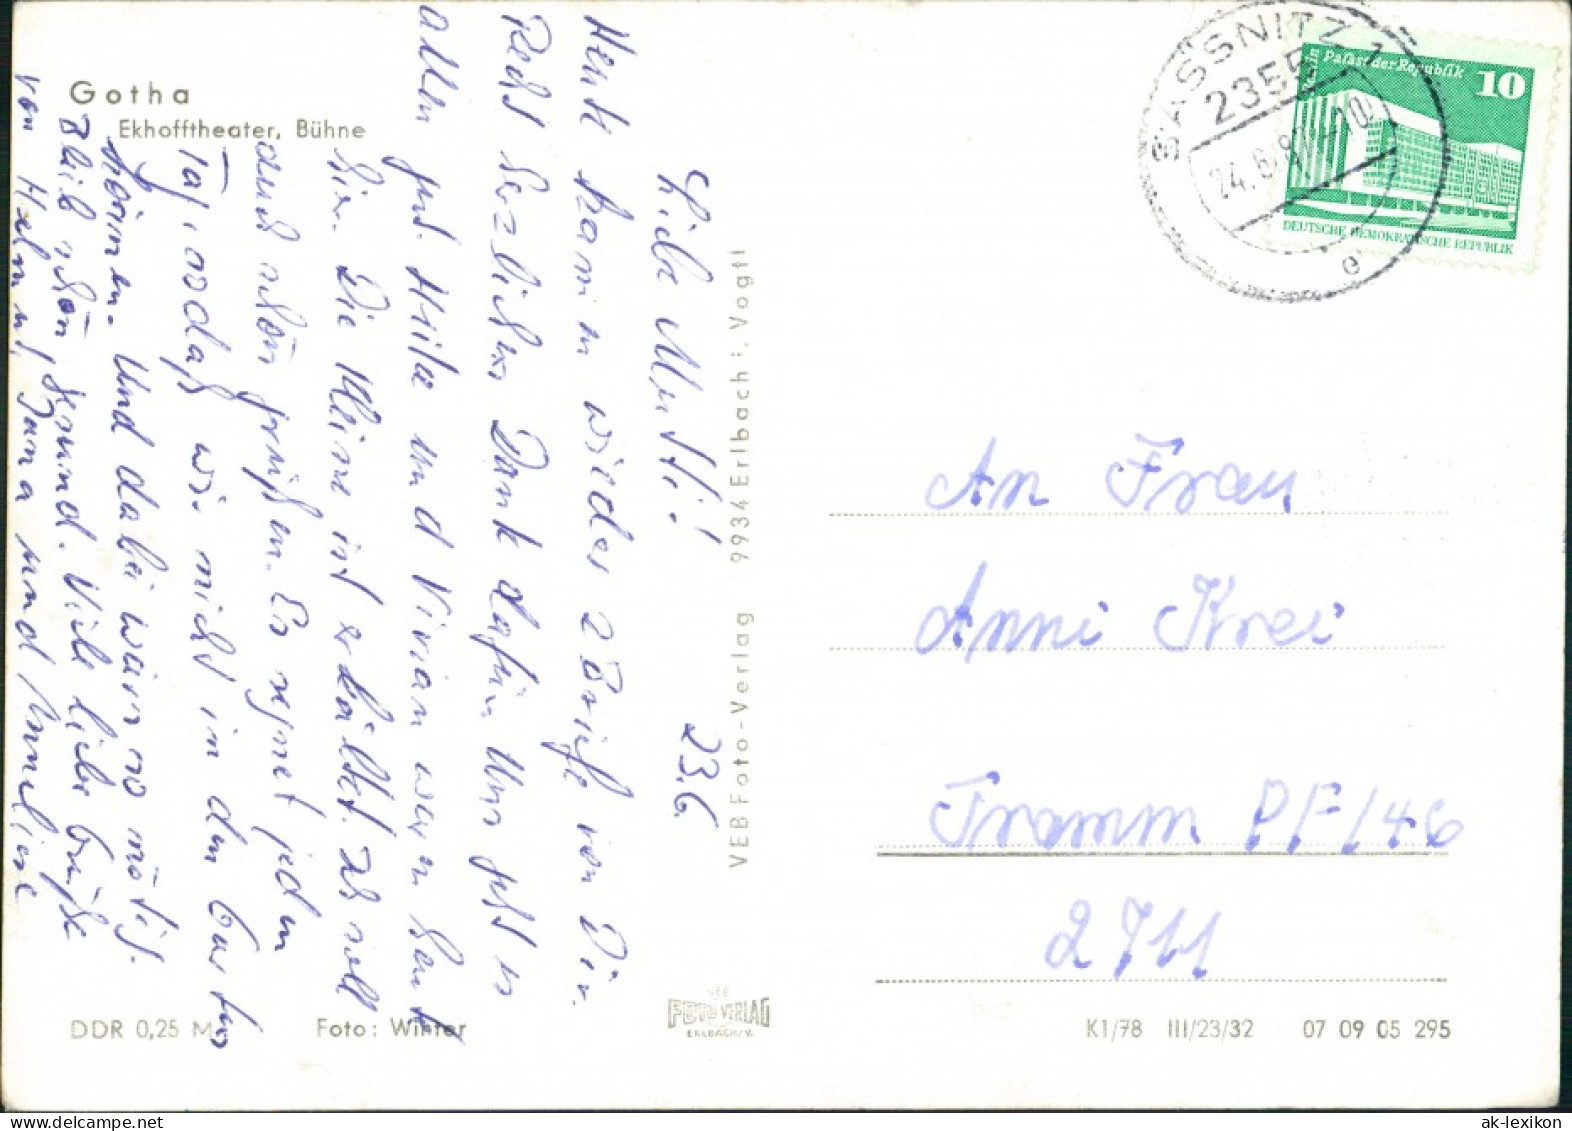 Gotha
Ekhofftheater, Bühne
Liebe Mutti! 23.6.
Heute kamen wieder 2 Briefe von Dir.
Recht herzlichen Dank dafür. Uns geht es
allen gut. Heike und Vivian waren heute
hier. Die Kleine ist erkältet. Ich soll
auch schön grüßen. Es regnet jeden
Tag, sodaß wir nicht in den Garten
können. Und dabei wär's so nötig.
Bleib schön gesund. Viele liebe Grüße
von Helmut, Jana und Annelise
DDR 0,25 M
Foto: Winter
VEB Foto-Verlag 9934 Erlbach i. Vogtl
VEB
FOTO VERLAG
ERLBACH/V.
SASSNITZ 1
2355
24.6.8
e
Palast der Republik 10
DEUTSCHE DEMOKRATISCHE REPUBLIK
An Frau
Anni Krei
Tramm PF 146
2711
K1/78 III/23/32 07 09 05 295
ak-lexikon